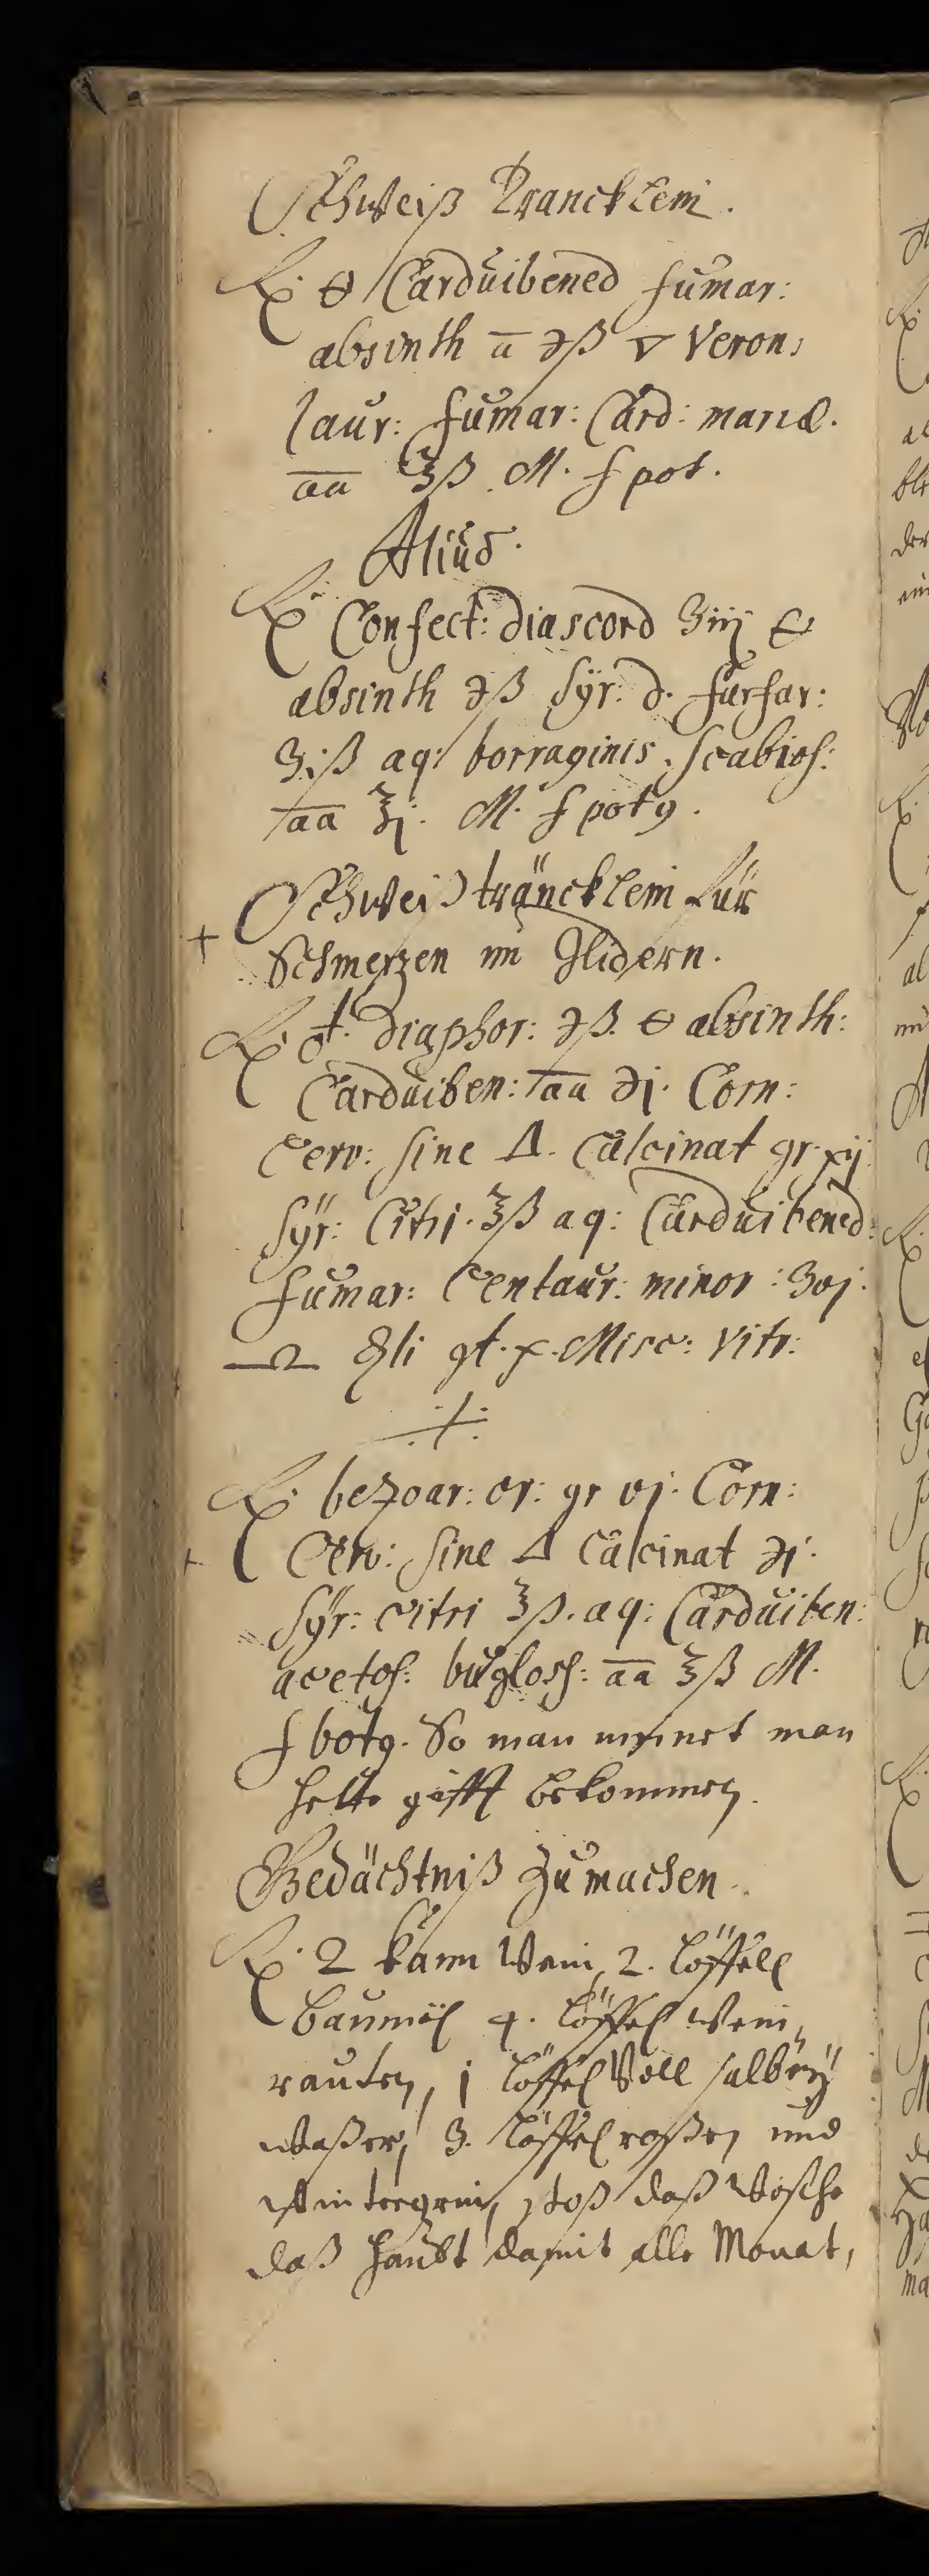 Schweiß Trancklein.
℞. 🜔 Carduibened fumar:
absinth ā ℈ß 🜄 Veron:
laur: fumar: Card: mariæ.
āā ℥ß M. f pot.
Aliud.
℞ Confect: diascord ʒiij 🜔
absinth ℈ß syr: d. farfar:
ʒiß aq: borraginis, scabios:
āā ℥j. M. f potꝯ.
Schweißträncklein für
+ Schmerzen im Glidern.
℞ ♁. diaphor: ℈ß. 🜔 absinth:
Carduiben: āā ℈j. Corn:
Cerv: sine 🜂. Calcinat gr. xij.
syr: Citri. ℥ß aq: Carduibened:
fumar: Centaur: minor: ʒvj.
gt. x. Misc: Vitr:
·/·
℞ bezoar: or: gr vj. Corn:
+ Cerv: sine 🜂 Calcinat ℈j.
syr: citri ℥ß. aq: Carduiben:
acetos: bugloss: āā ℥ß M.
f botꝯ. So man meinet man
hette gifft bekommen.
Gedächtniß zu machen.
℞. 2 kann Wein, 2. löffell
baumöl 4. löffel Wein„
rauten, j löffel Voll salbey
Waßer, 3. löffel roßen und
Wintergrin, stoß daß Wasche
daß haubt damit alle Monat,